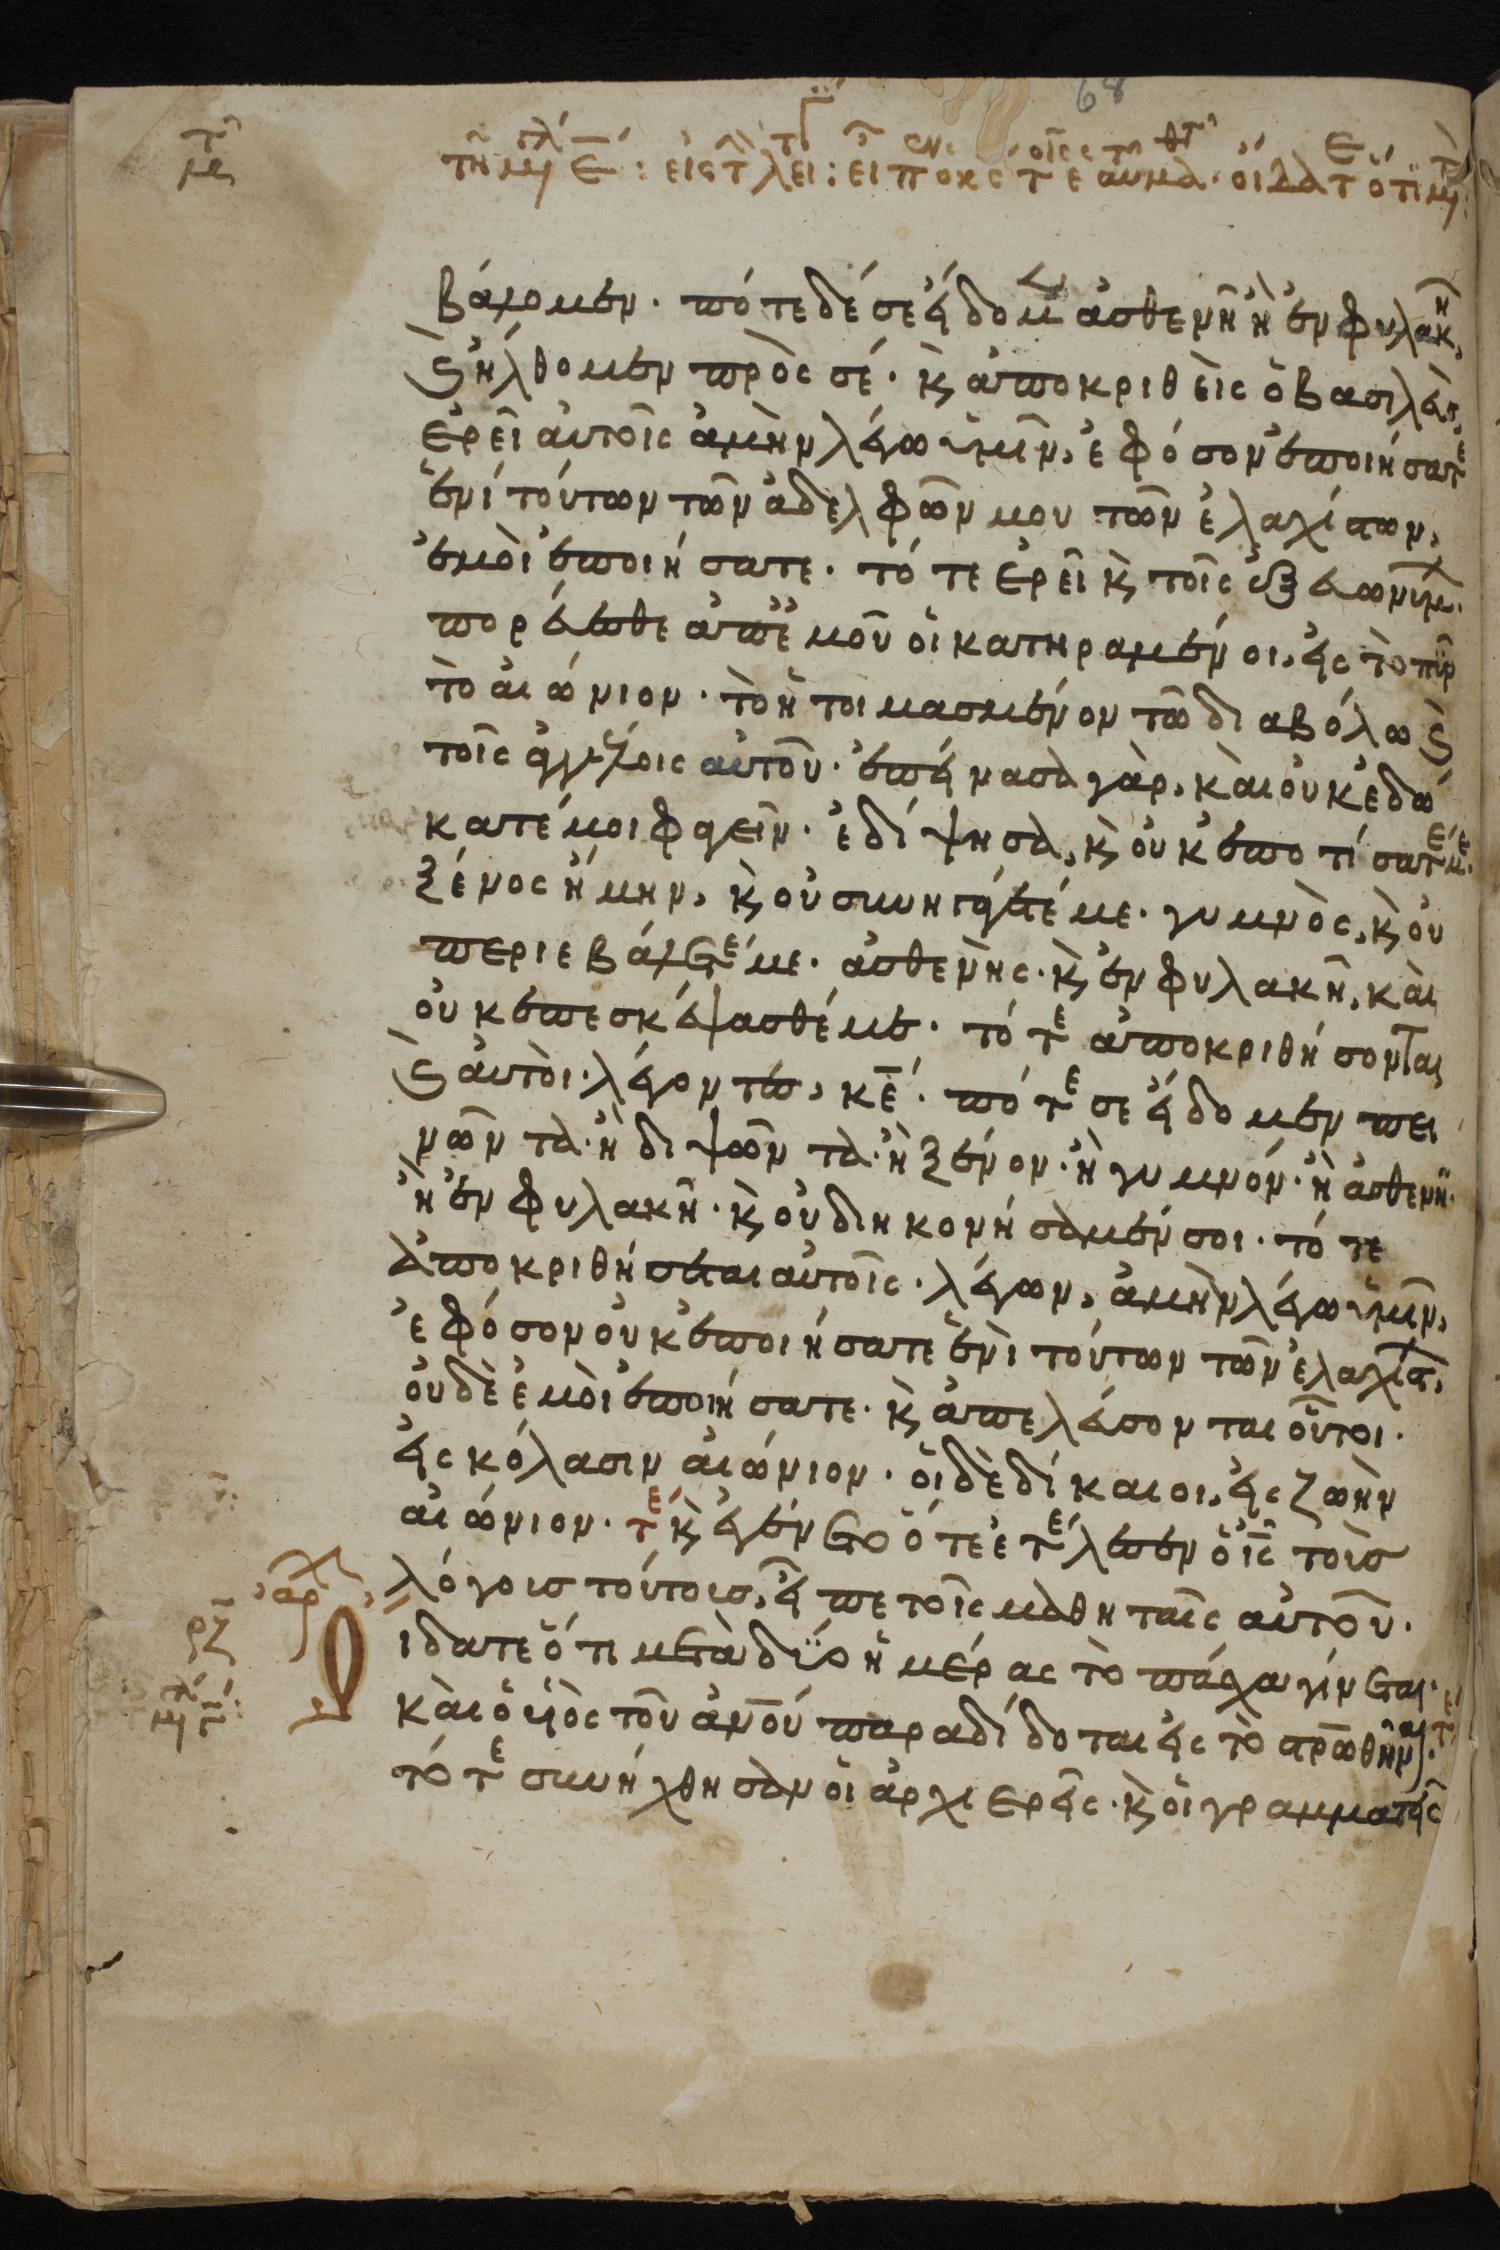 68
βάλομεν. πότε δέ σε εἴδομεν ἀσθενῆ ἢ ἐν φυλακῆ,
καὶ ἤλθομεν πρὸς σέ. κ ἀποκριθεὶς ὁ βασιλεὺς,
ἐρεῖ αὐτοῖς ἀμὴν λέγω ὑμῖν, ἐφόσον ἐποιήσατε
ἑνὶ τούτων τῶν ἀδελφῶν μου τῶν ἐλαχίστων,
ἐμοὶ ἐποιήσατε. τότε ἐρεῖ κ τοῖς ἐξ εὐωνύμ.
πορεύεσθε ἀπ' ἐμοῦ οἱ κατηραμένοι, εἰς τὸ πῦρ
τὸ αἰώνιον. τὸ ἡτοιμασμένον τῶ διαβόλω καὶ
τοῖς ἀγγέλοις αὐτοῦ. ἐπείνασα γὰρ, καὶ οὐκ ἐδώ
κατέ μοι φαγεῖν. ἐδίψησα, κ οὐκ ἐποτίσατέ με.
ξένος ἤμην, κ οὐ συνηγάγετέ με. γυμνὸς, κ οὐ
περιεβάλετέ με. ἀσθενὴς. κ ἐν φυλακῆ, καὶ
οὐκ ἐπεσκέψασθέ με. τότε ἀποκριθήσονται
καὶ αὐτοὶ. λέγοντες, κε. πότε σε εἴδομεν πει
νῶντα. ἢ διψῶντα. ἢ ξένον. ἢ γυμνόν. ἢ ἀσθενῆ.
ἢ ἐν φυλακῆ. κ οὐ διηκονήσαμέν σοι. τότε
ἀποκριθήσεται αὐτοῖς. λέγων, ἀμὴν λέγω ὑμῖν,
ἐφόσον οὐκ ἐποιήσατε ἑνὶ τούτων τῶν ἐλαχίστ,
οὐδὲ ἐμοὶ ἐποιήσατε. κ ἀπελεύσονται οὗτοι.
εἰς κόλασιν αἰώνιον. οἱ δὲ δίκαιοι, εἰς ζωὴν
αἰώνιον. τε κ ἐγένετο ὅτε ἐτέλεσεν ὁ ις τοὺσ
λόγουσ τούτουσ, εἶπε τοῖς μαθηταῖς αὐτοῦ.
ιδατε ὅτι μετὰ δύο ἡμέρας τὸ πάσχα γίνεται.
καὶ ὁ υἱὸς τοῦ ανου παραδίδοται εἰς τὸ στρωθῆναι.
τότε συνήχθησαν οἱ ἀρχιερεῖς. κ οἱ γραμματεῖς